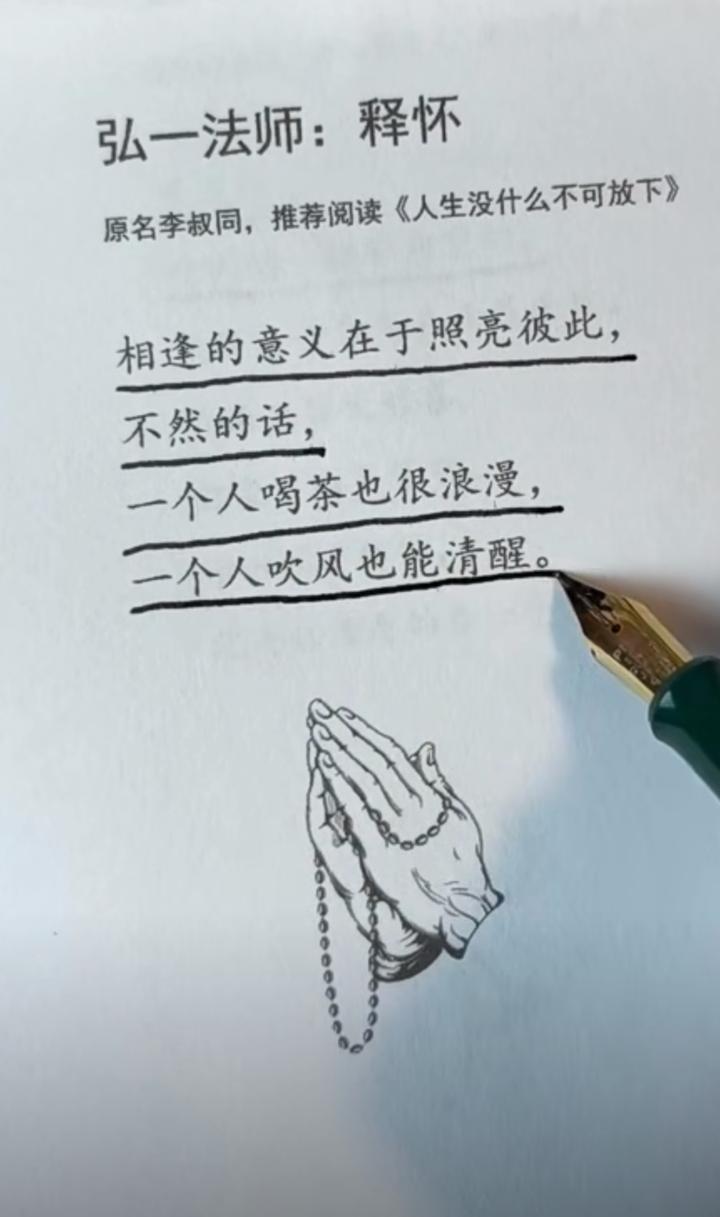 弘一法师：释怀
原名李叔同，推荐阅读《人生没什么不可放下》
相逢的意义在于照亮彼此，
不然的话，
一个人喝茶也很浪漫，
一个人吹风也能清醒。